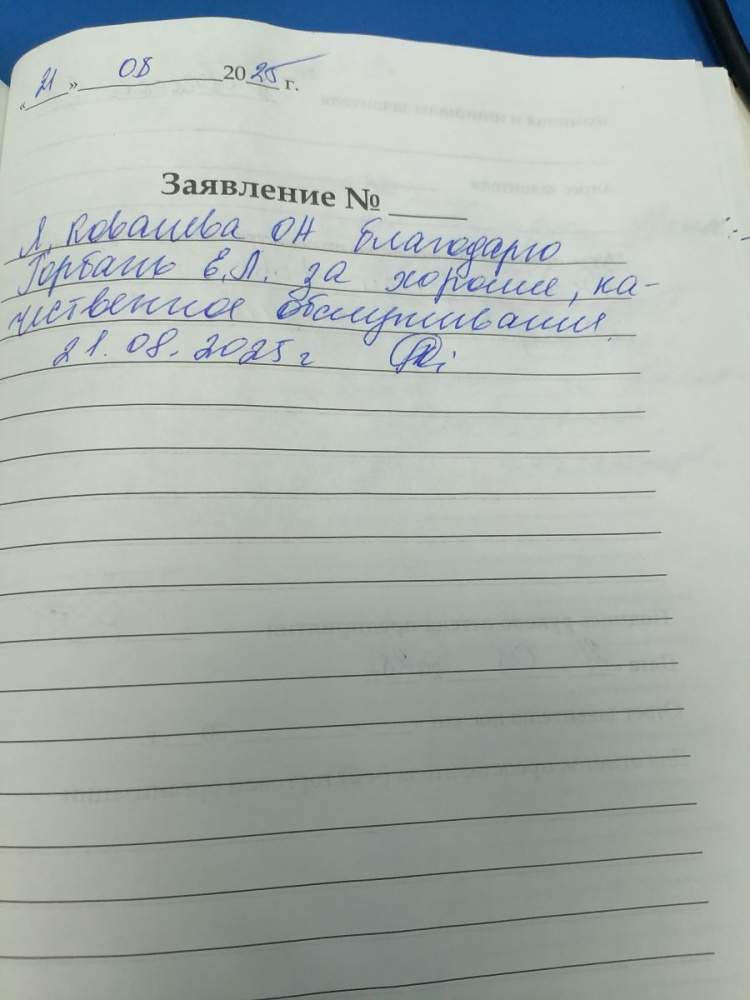 «21» 08 2025 г.
Заявление № ____
Я, Ковалева ОН благодарю
Горбань Е.Л. за хорошие, ка-
чественное обслуживания.
21.08.2025 г